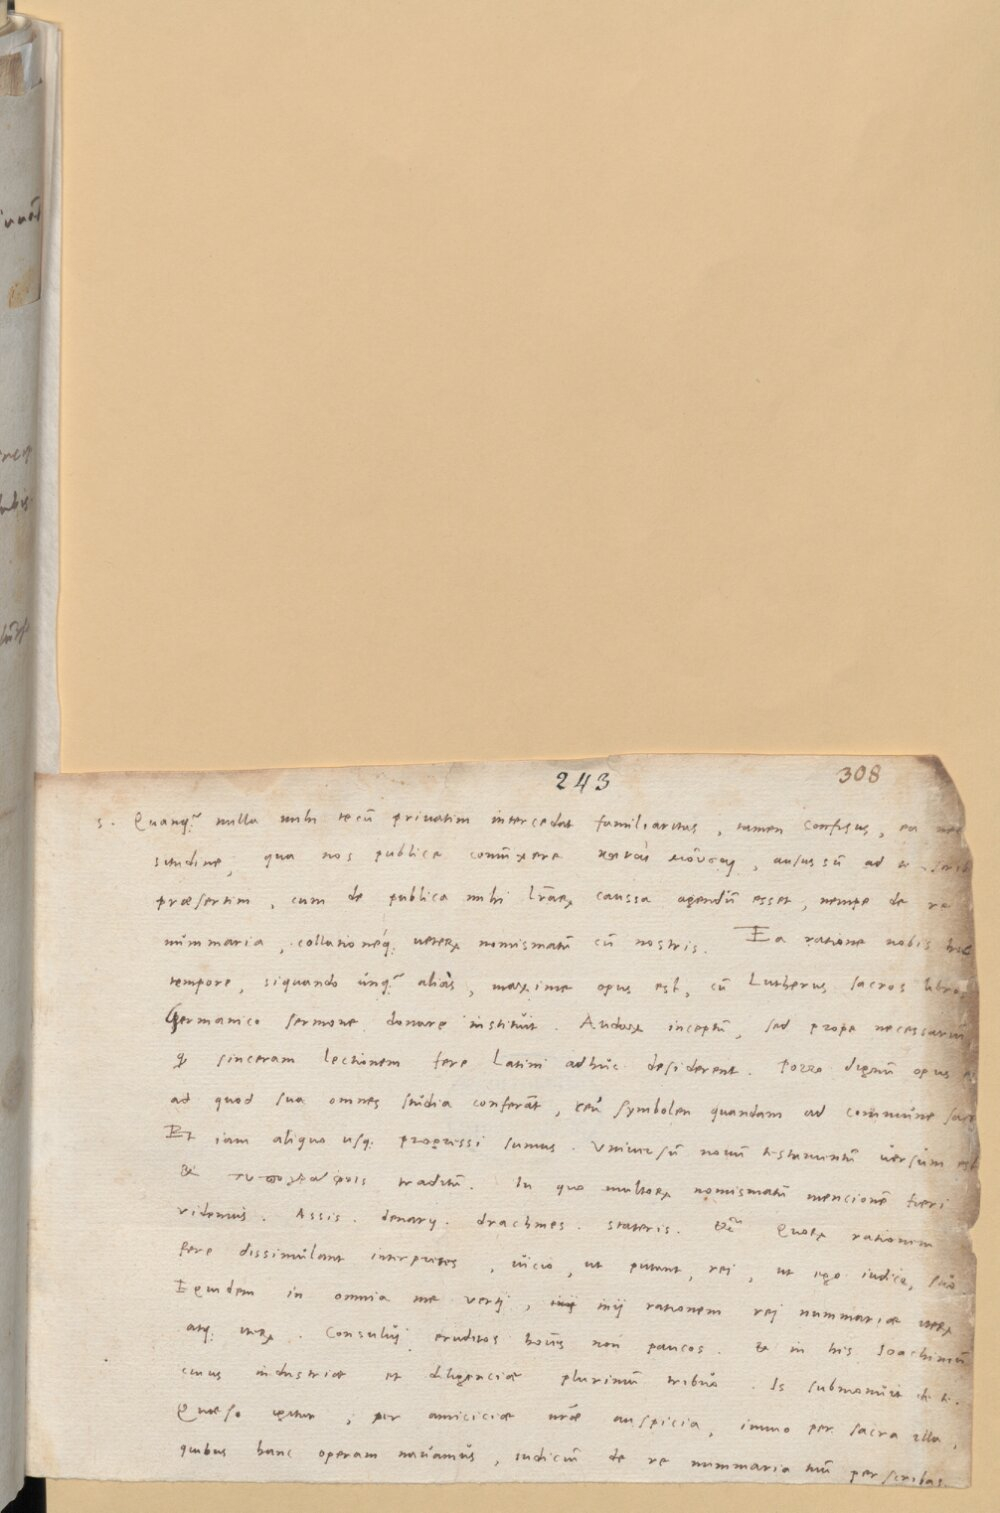 243
308
S. Quanq̃ nulla mihi tecū priuatim intercedat familiaritas, tamen confisus, ea nec
situdine, qua nos publice coniũxere κοιναὶ μοῦσαι, ausus sū ad te scrib
præsertim, cum de publica mihi l̃raꝝ caussa agendū esset, nempe de re
nummaria, collationeq́; ueteꝝ nomismatū cū nostris. Ea ratione nobis hoc
tempore, siquando unq̃ aliàs, maxime opus est, cū Lutherus sacros libros
Germanico sermone donare instituit. Audax inceptū, sed prope necessariū,
ꝙ sinceram lectionem fere Latini adhuc desiderent. Porro dignū opus e
ad quod sua omnes studia conferāt, ceu symbolen quandam ad commune sacr
Et iam aliquo usq; progressi sumus. Vniuersū nouū testamentū uersum est
& τυπογράφοις traditū. In quo multoꝝ nomismatū mencionē fieri
videmus. Assis. denarij. drachmes. stateris. &c̃ Quoꝝ rationem
fere dissimulant interpretes, uicio, ut putant, rei, ut ego iudico, suo
Equidem in omnia me verti, inij rationem rej nummariæ ueteꝝ
Consului eruditos homīes non paucos. & in his Ioachimū
cuius industriæ et diligenciæ plurimū tribuo. Is submonuit de te.
Quæso igitur, per amiciciæ nr̃æ auspicia, immo per sacra illa,
quibus hanc operam nauamus, iudiciū de re nummaria tuū perscribas.